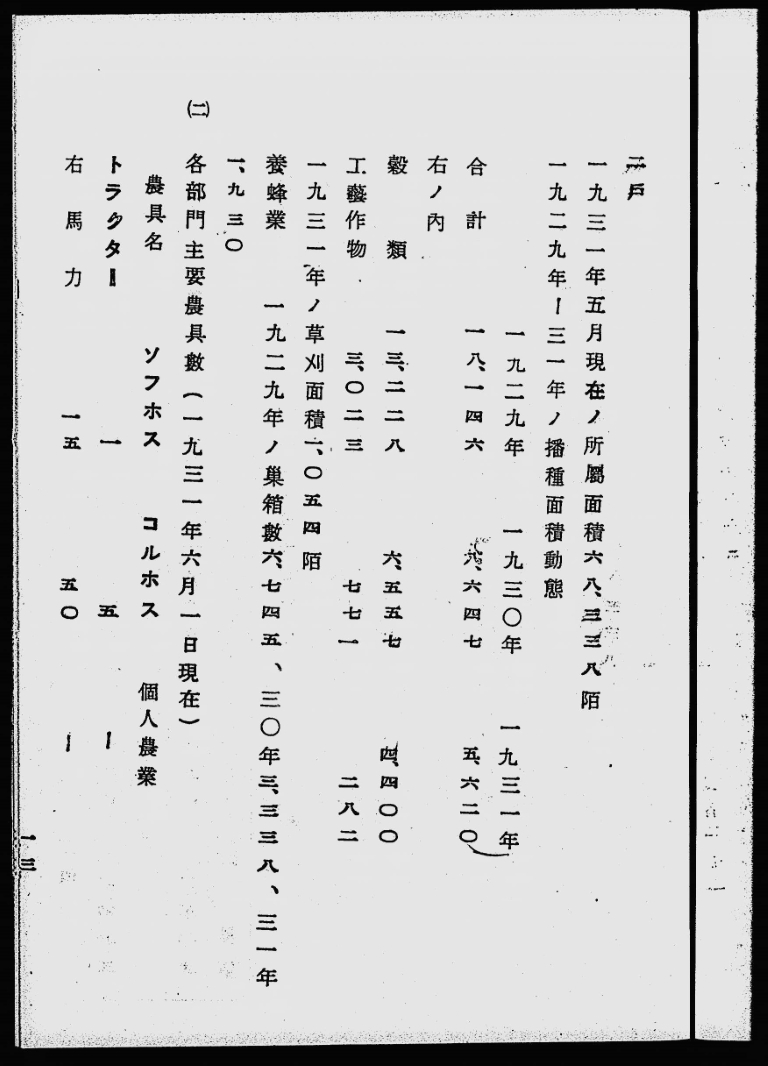 二戶
一九三一年五月現在ノ所屬面積六八、三三八陌
一九二九年ー三一年ノ播種面積動態
一九二九年 一九三〇年 一九三一年
合計 一八、一四六 八、六四七 五、六二〇
右ノ內
穀類 一三、二二八 六、五五七 四、四〇〇
工藝作物 三、〇二三 七七一 二八二
一九三一年ノ草刈面積一、〇五四陌
養蜂業 一九二九年ノ巢箱數六、七四五、三〇年三、三三八、三一年
一、九三〇
㈡ 各部門主要農具數(一九三一年六月一日現在)
農具名 ソフホス コルホス 個人農業
トラクター 一 五 ー
右馬力 一五 五〇 ー
一三